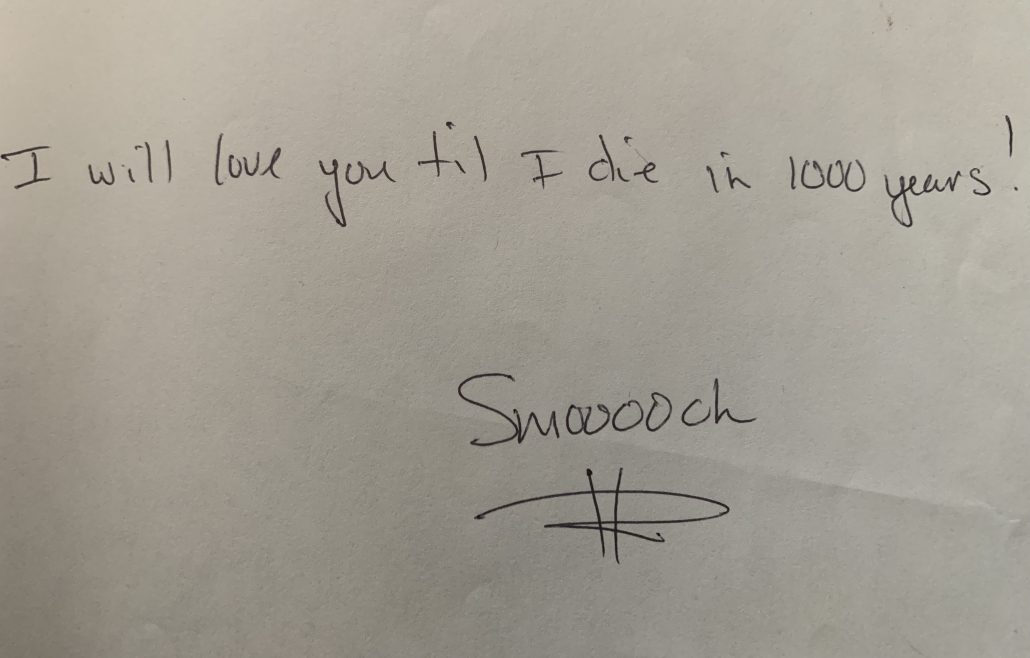 I will love you til I die in 1000 years!
Smooooch